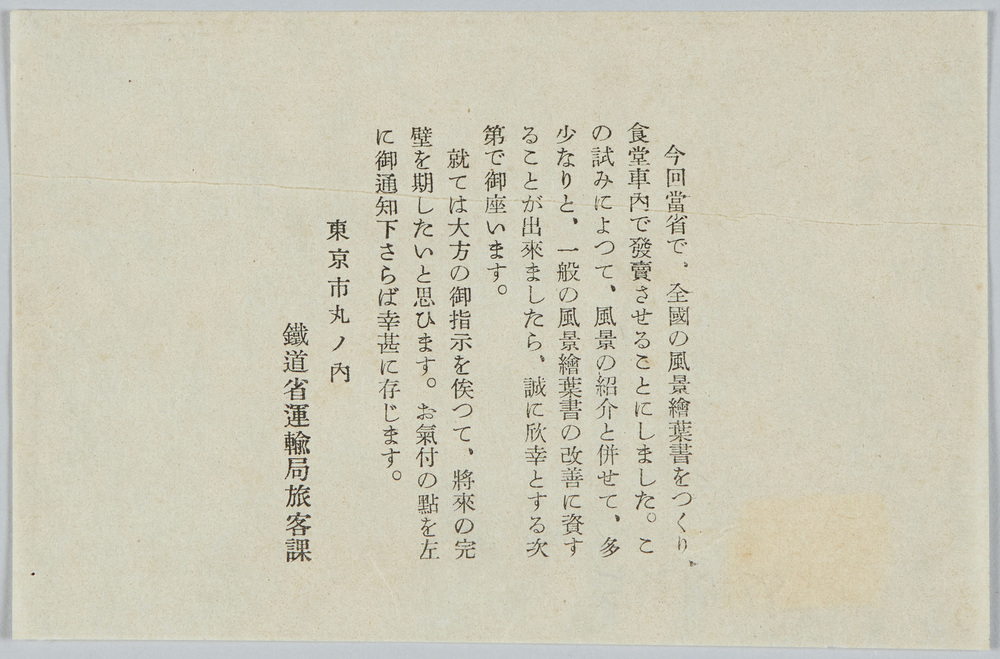 今回當省で、全國の風景繪葉書をつくり、
食堂車內で發賣させることにしました。こ
の試みによつて、風景の紹介と併せて、多
少なりと、一般の風景繪葉書の改善に資す
ることが出來ましたら、誠に欣幸とする次
第で御座います。
就ては大方の御指示を俟つて、將來の完
壁を期したいと思ひます。お氣付の點を左
に御通知下さらば幸甚に存じます。
東京市丸ノ內
鐵道省運輸局旅客課